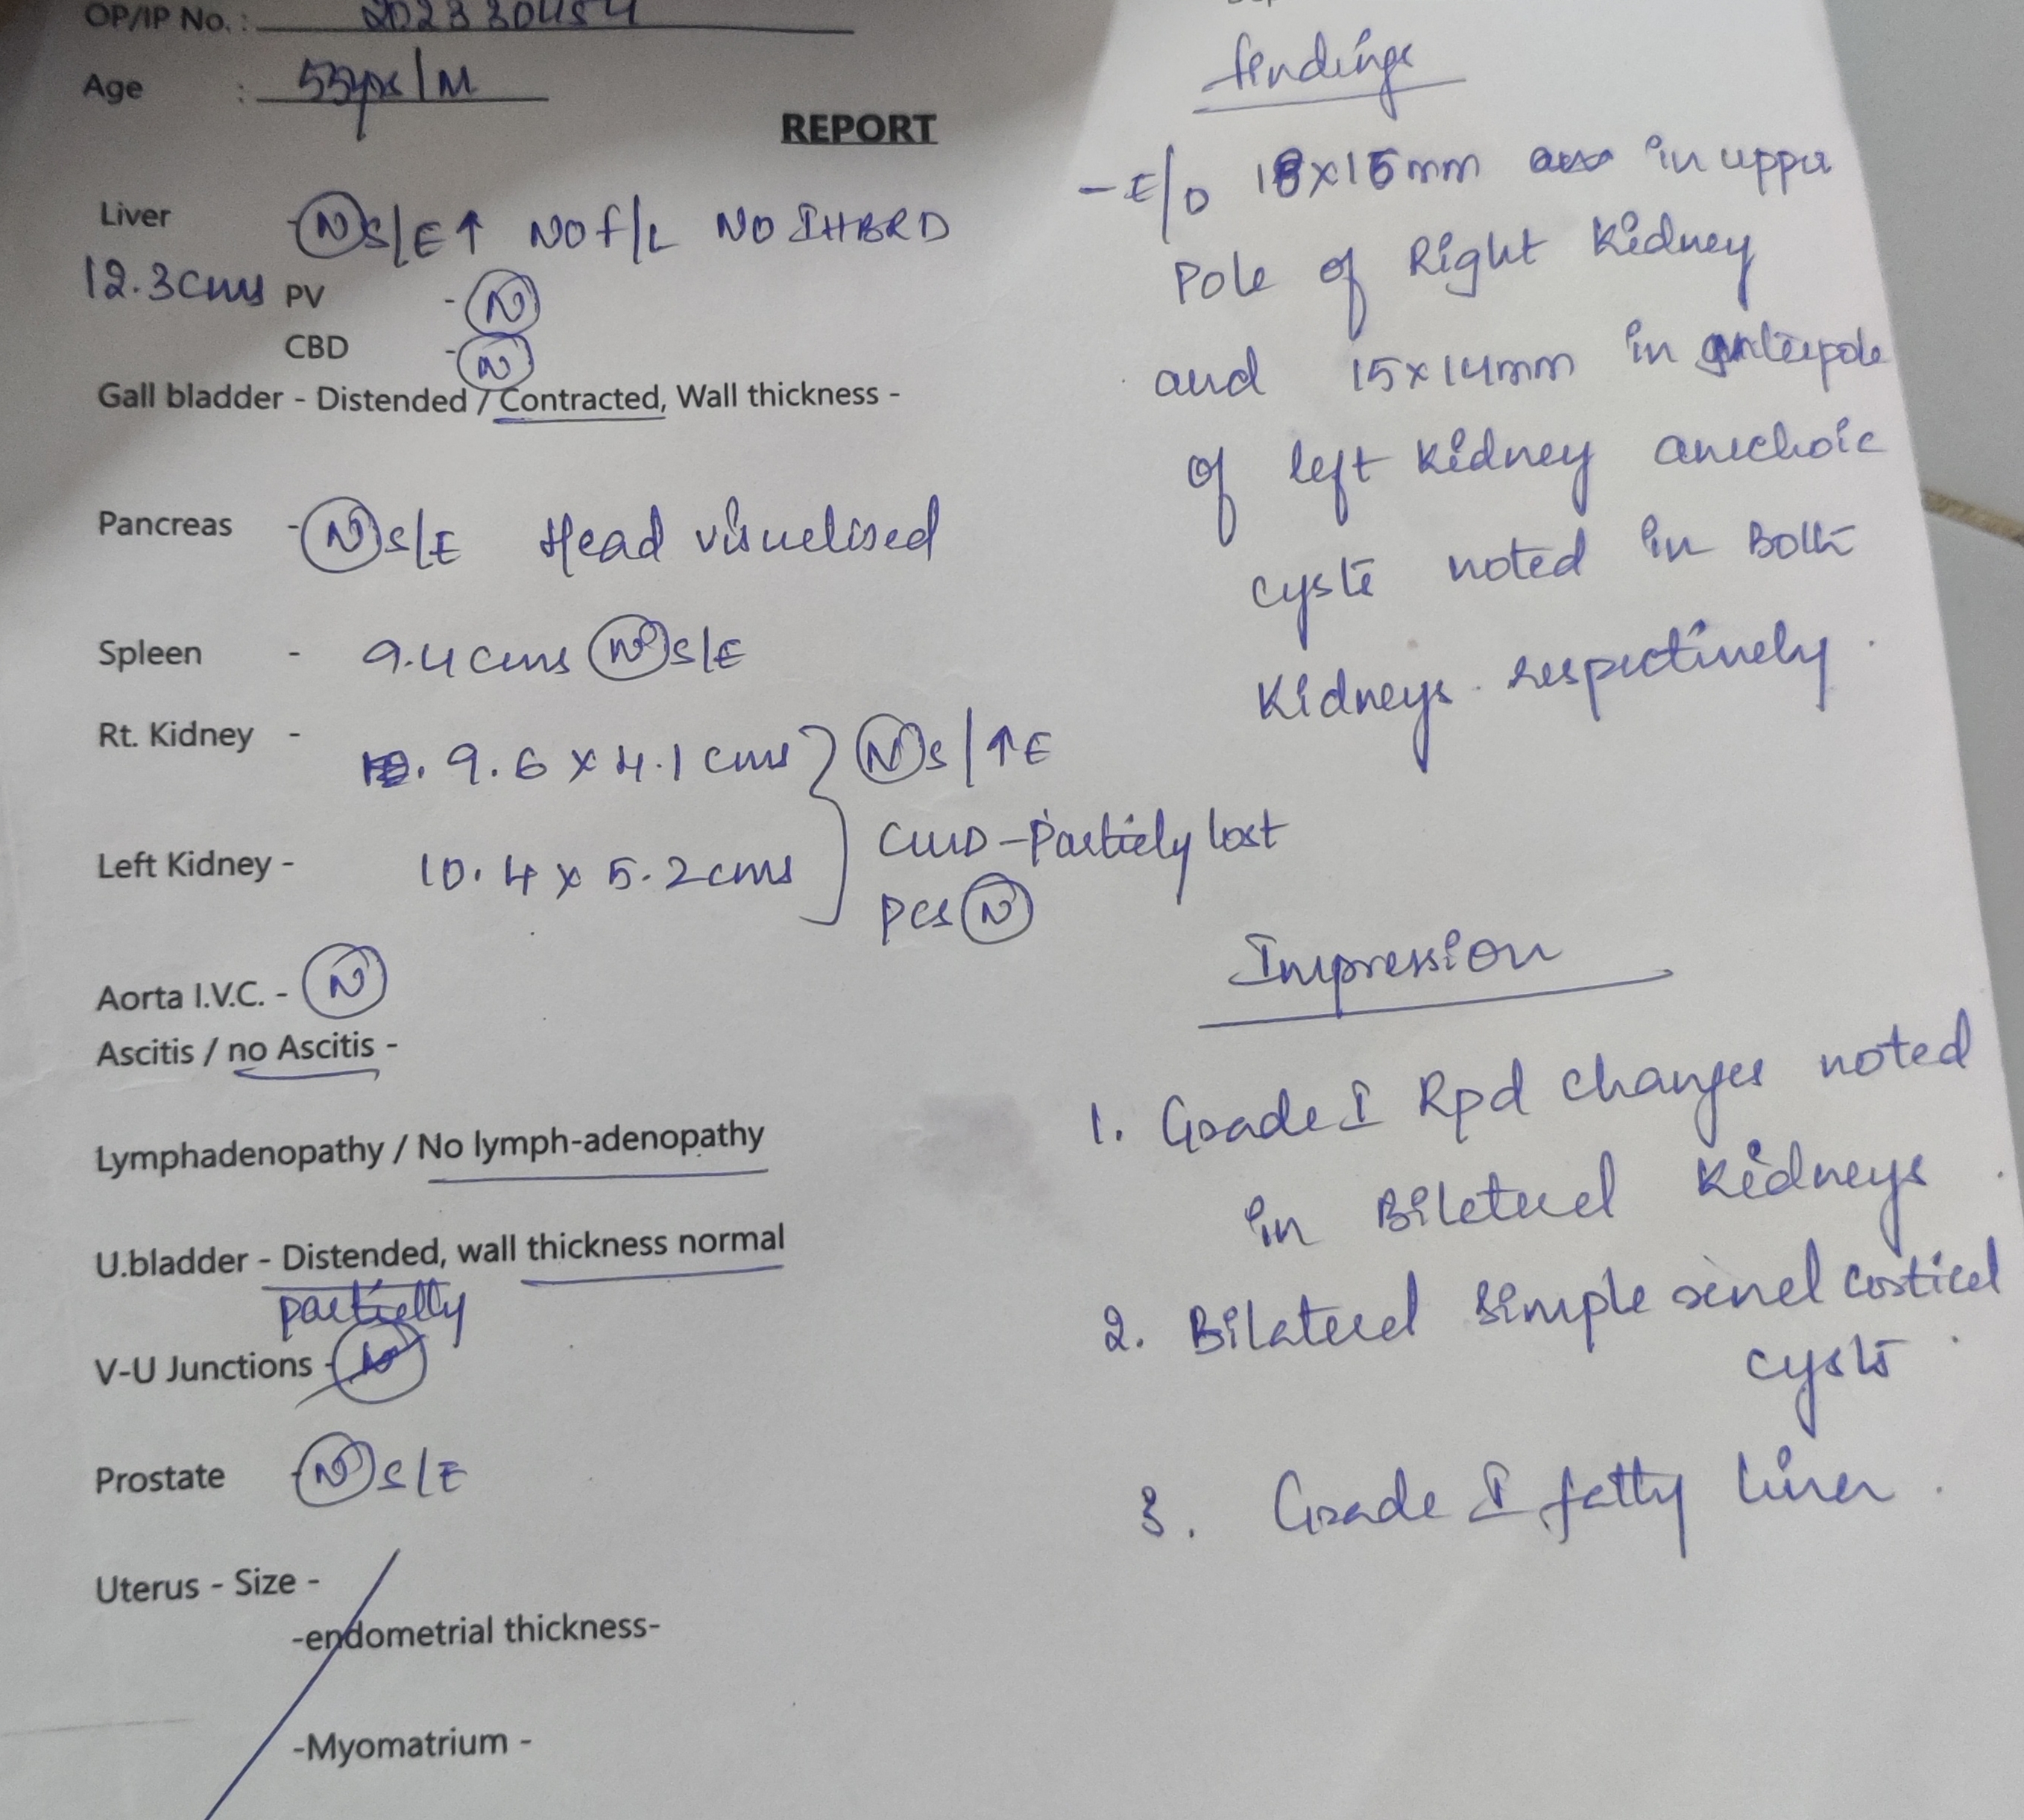 OP/IP No. :
Age : 55yrs/M
REPORT
Liver - N S/E↑ NO f/L NO IHBRD
12.3cms PV - N
CBD - N
Gall bladder - Distended / Contracted, Wall thickness -
Pancreas - N S/E Head visuelised
Spleen - 9.4cms N S/E
Rt. Kidney - 9.6 x 4.1 cms } N S/↑E
CMD - Partiely lost
Left Kidney - 10.4 x 5.2cms
pcs N
Aorta I.V.C. - N
Ascitis / no Ascitis -
Lymphadenopathy / No lymph-adenopathy
U.bladder - Distended, wall thickness normal
partielly
V-U Junctions -
Prostate - N S/E
Uterus - Size -
-endometrial thickness-
-Myomatrium -
findings
- E/o 18x15mm in upper
Pole of Right Kidney
and 15x14mm in
of left Kidney anechoic
cysts noted in Both
Kidneys respectively.
Impression
1. Grade I Rpd changes noted
in Bileteral Kidneys.
2. Bilaterel simple renel corticel
cysts.
3. Grade I fatty liver.